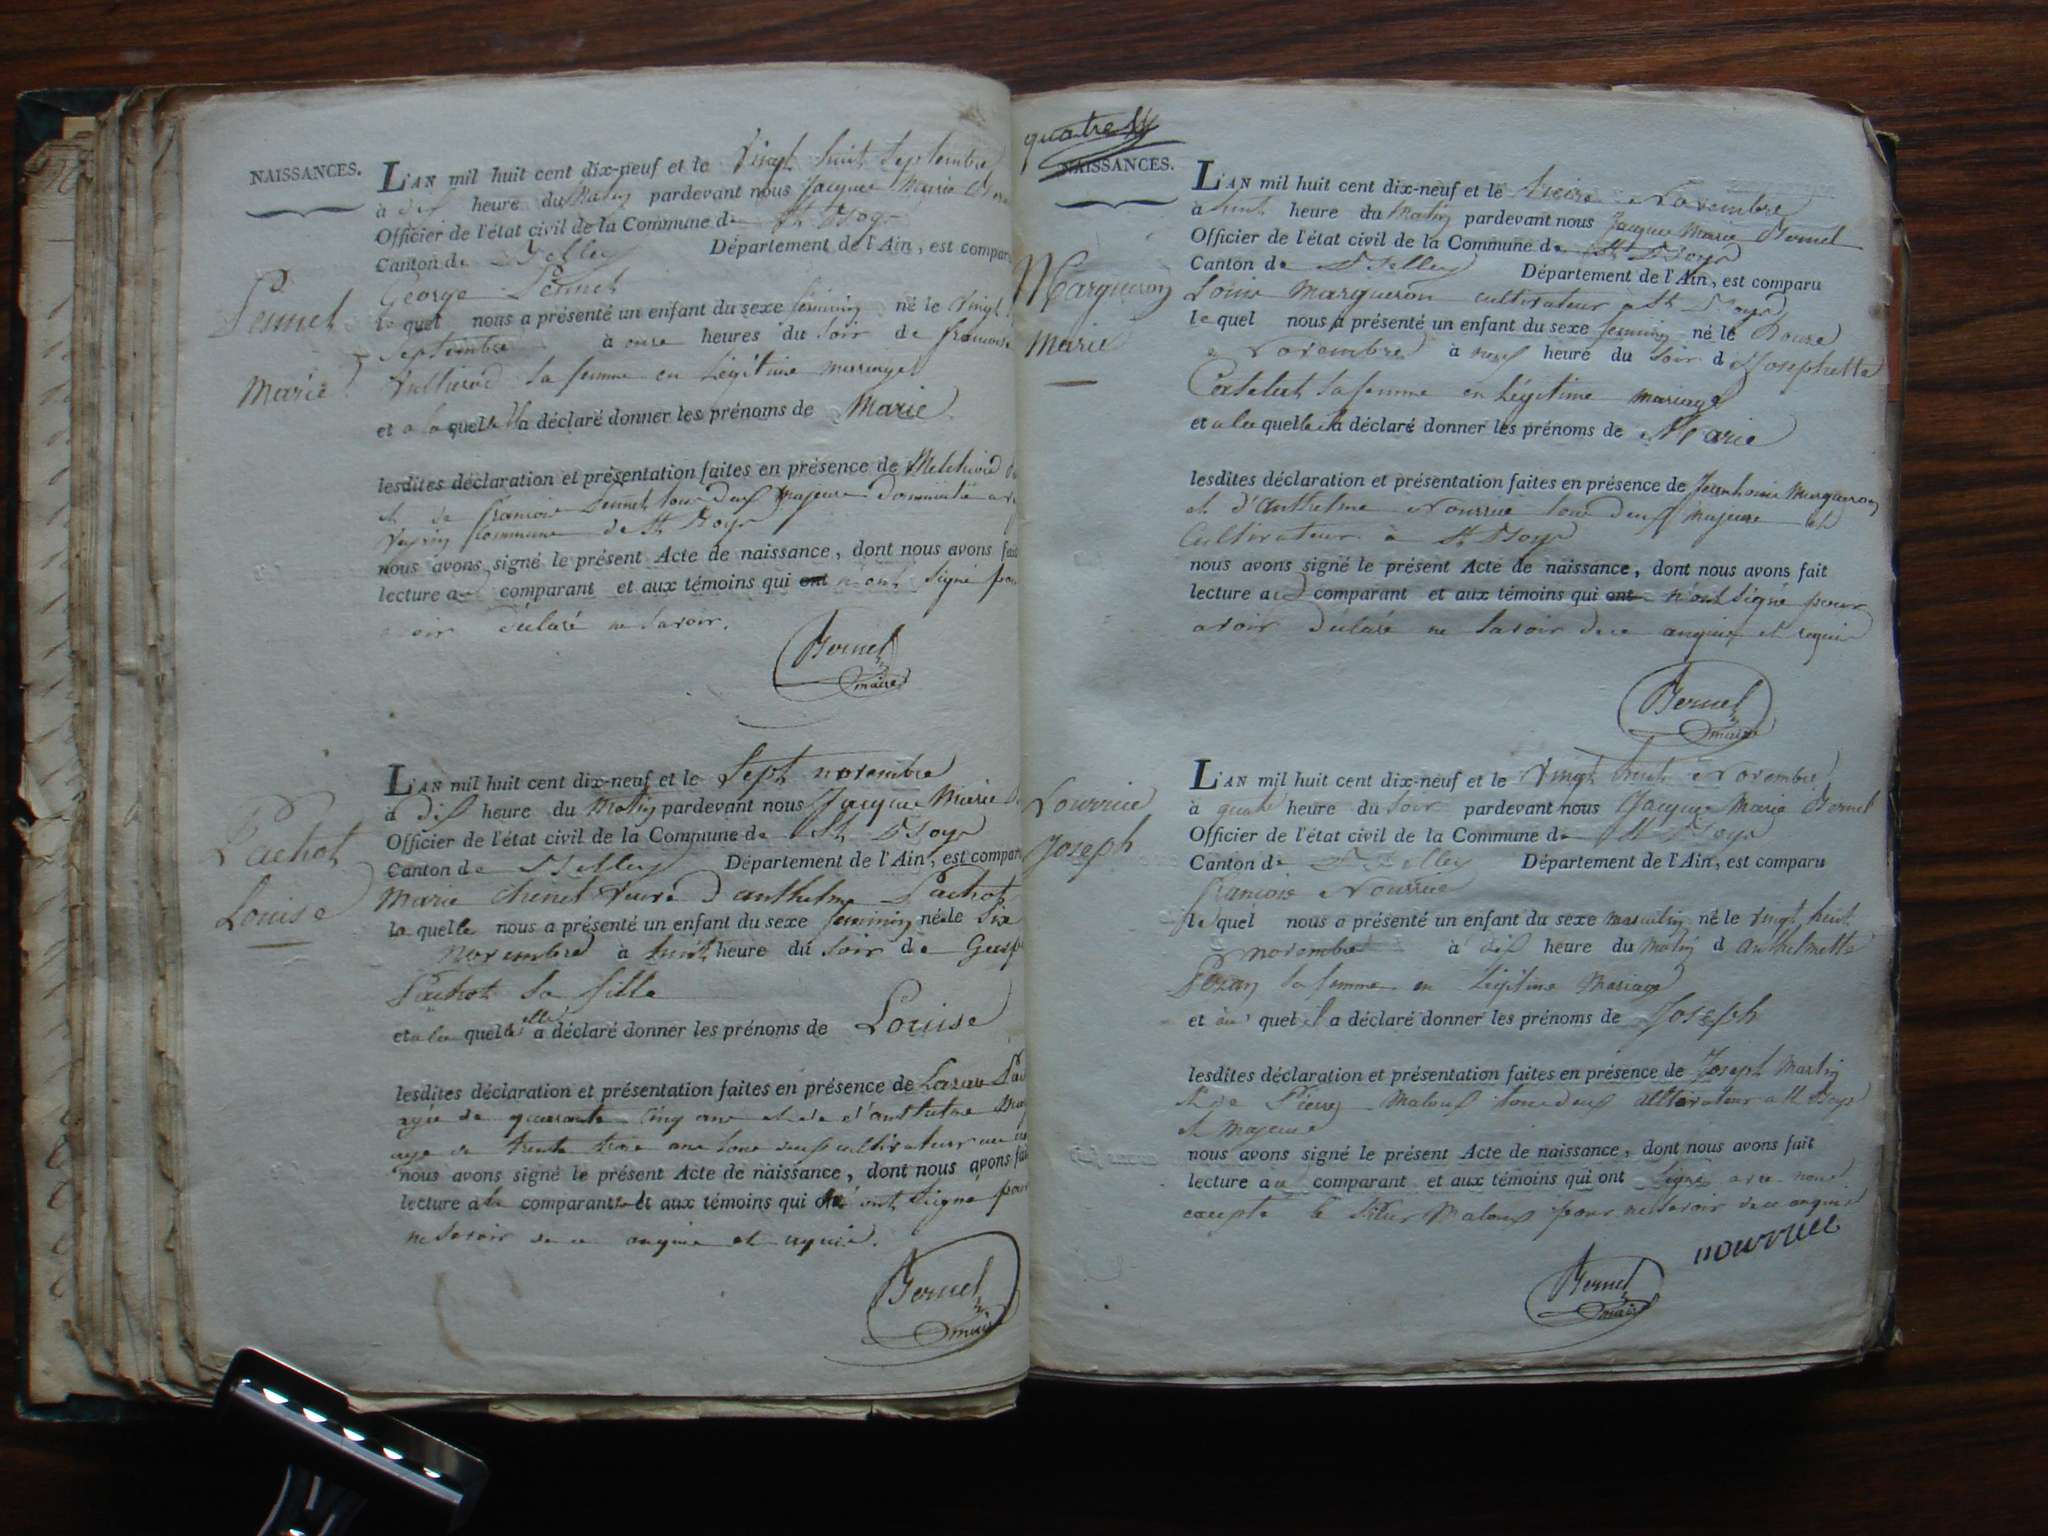 NAISSANCES.
L'AN mil huit cent dix-neuf et le vingt huit Septembre
à dix heure du Matin pardevant nous Jacque Marie
Officier de l'état civil de la Commune de St Boys
Canton de Belley Département de l'Ain, est compar
George Pennet
le quel nous a présenté un enfant du sexe feminin né le vingt
Septembre à onze heures du Soir de francoise
Pennet
Marie
sa femme en Légitime marriage
et a la quelle Il a déclaré donner les prénoms de Marie
lesdites déclaration et présentation faites en présence de Melchior
et de francois Pennet tous deux majeure domicilié
Commune de St Boys
nous avons signé le présent Acte de naissance, dont nous avons fait
lecture au comparant et aux témoins qui ont n'ont Signé pour
avoir déclaré ne Savoir.
Bornet
maire
L'AN mil huit cent dix-neuf et le Sept novembre
à dix heure du Matin pardevant nous Jacque Marie
Officier de l'état civil de la Commune de St Boys
Canton de Belley Département de l'Ain, est compar
Pachot
Louise
Marie Chenet veuve d'anthelme Pachot
la quelle nous a présenté un enfant du sexe feminin né le Six
novembre à huit heure du Soir de
Pachot Sa fille
et a la quelle elle a déclaré donner les prénoms de Louise
lesdites déclaration et présentation faites en présence de
agée de quarante Cinq ans et de d'anthelme
age de trente trois ans tous deux cultivateurs
nous avons signé le présent Acte de naissance, dont nous avons fait
lecture a la comparante et aux témoins qui n'ont Signé pour
ne Savoir de ce enquis et requis.
Bornet
maire
quatre
NAISSANCES.
L'AN mil huit cent dix-neuf et le treize Novembre
à huit heure du Matin pardevant nous Jacque Marie Bornet
Officier de l'état civil de la Commune de St Boys
Canton de Belley Département de l'Ain, est comparu
Margueron
Marie
Louis Margueron cultivateur a St Boys
le quel nous a présenté un enfant du sexe feminin né le Douze
Novembre à neuf heure du Soir d Josephette
sa femme en Légitime mariage
et a la quelle il a déclaré donner les prénoms de Marie
lesdites déclaration et présentation faites en présence de Jean Louis Margueron
et d'Anthelme Nourrice tous deux majeure et
Cultivateur à St Boys
nous avons signé le présent Acte de naissance, dont nous avons fait
lecture au comparant et aux témoins qui ont n'ont Signé pour
avoir déclaré ne Savoir de ce enquis et requis
Bornet
maire
L'AN mil huit cent dix-neuf et le vingt huit Novembre
à quatre heure du Soir pardevant nous Jacque Marie Bornet
Officier de l'état civil de la Commune de St Boys
Canton de Belley Département de l'Ain, est comparu
Nourrice
Joseph
francois Nourrice
le quel nous a présenté un enfant du sexe masculin né le vingt huit
novembre à dix heure du Matin d anthelmette
sa femme en Légitime Mariage
et au quel il a déclaré donner les prénoms de Joseph
lesdites déclaration et présentation faites en présence de Joseph Martin
et de Pierre Maloux tous deux a St Boys
et majeure
nous avons signé le présent Acte de naissance, dont nous avons fait
lecture au comparant et aux témoins qui ont Signé avec nous
excepté le Sieur Maloux pour ne Savoir de ce enquis
nourrice
Bornet
maire